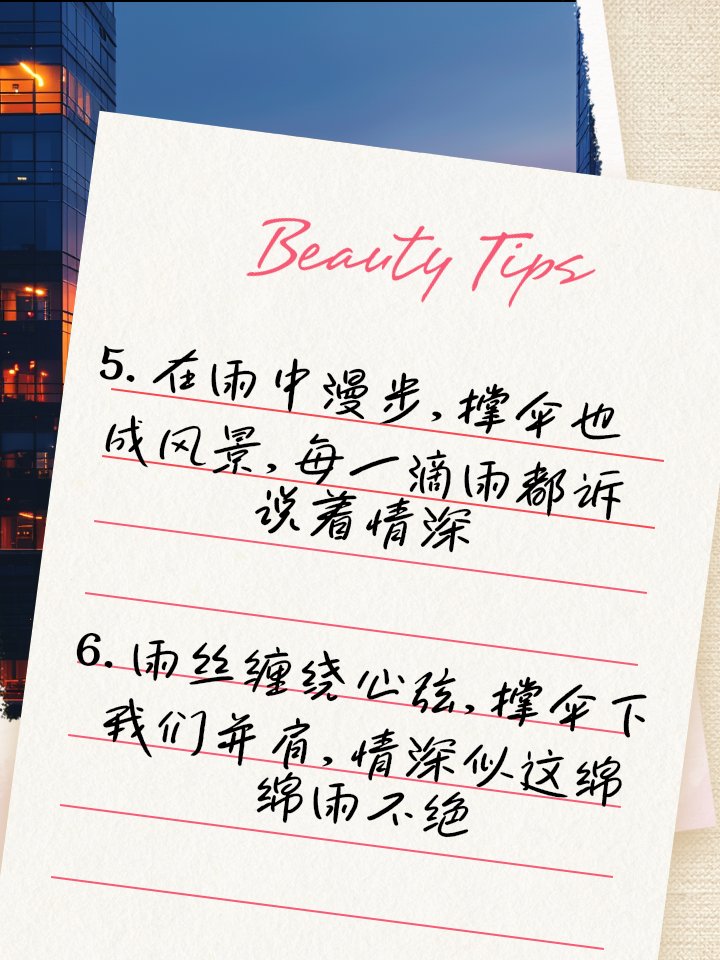 Beauty Tips
5. 在雨中漫步,撑伞也
成风景,每一滴雨都诉
说着情深
6. 雨丝缠绕心弦,撑伞下
我们并肩,情深似这绵
绵雨不绝